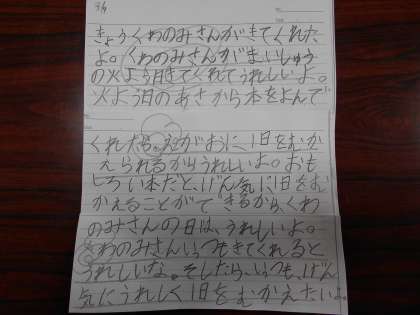 きょうくわのみさんがきてくれた
よ。くわのみさんがまいしゅう
の火よう日きてくれてうれしいよ。
火よう日のあさから本をよんで
くれたら。えがおに、1日をむか
えられるからうれしいよ。おも
しろい本だと、げん気に1日をむ
かえることができるから、くわ
のみさんの日は、うれしいよ。
くわのみさんいつもきてくれると
うれしいな。そしたら、いつも、げん
気にうれしく1日をむかえたいよ。